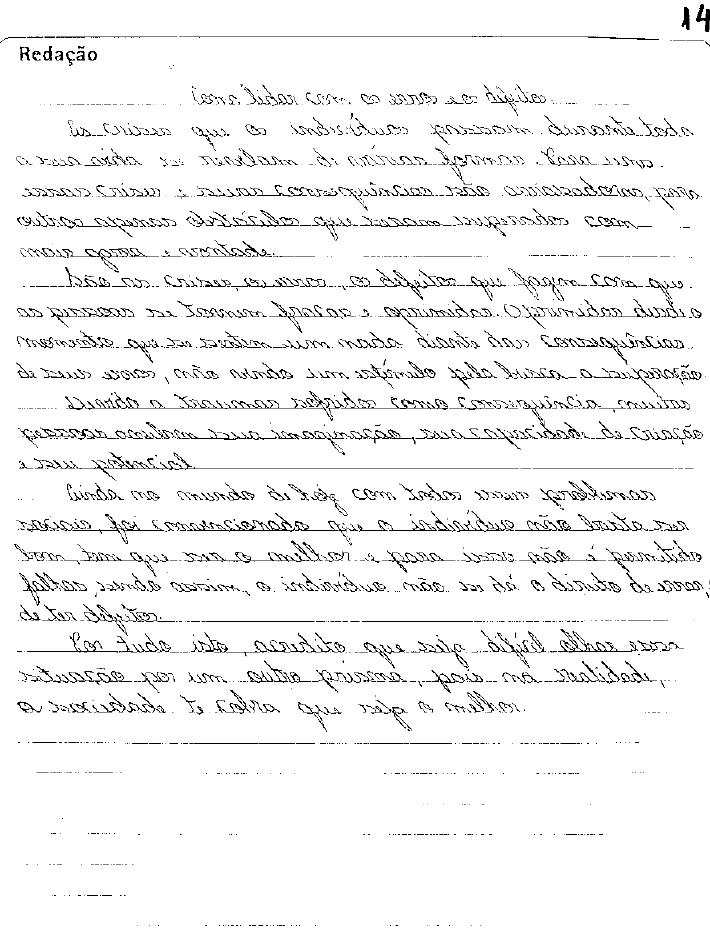 14
Redação
Como lidar com os erros e os defeitos
As crises que os indivíduos passam durante toda
a sua vida se revelam de várias formas. Para uns
essas crises e suas consequências são arrasadoras, para
outros apenas obstáculos que seram superados com
mais garra e vontade.
São as crises, os erros, os defeitos que fazem com que
as pessoas se tornem fracas e oprimidas. Oprimidas desde o
momento que se sentem um nada diante das consequências
de seus erros, não vendo um estímulo pela busca a superação
Devido a traumas sofridos como consequência, muitas
pessoas anulam sua imaginação, sua capacidade de criação
e seu potencial.
Ainda no mundo de hoje com todos esses problemas
sociais, foi convencionado que o indivíduo não basta ser
bom, tem que ser o melhor e para isso não é permitido
falhas, sendo assim, o indivíduo não se dá o direito de errar,
de ter defeitos.
Por tudo isto, acredito que seja difícil olhar essa
situação por um outro prisma, pois na realidade,
a sociedade te cobra que seja o melhor.